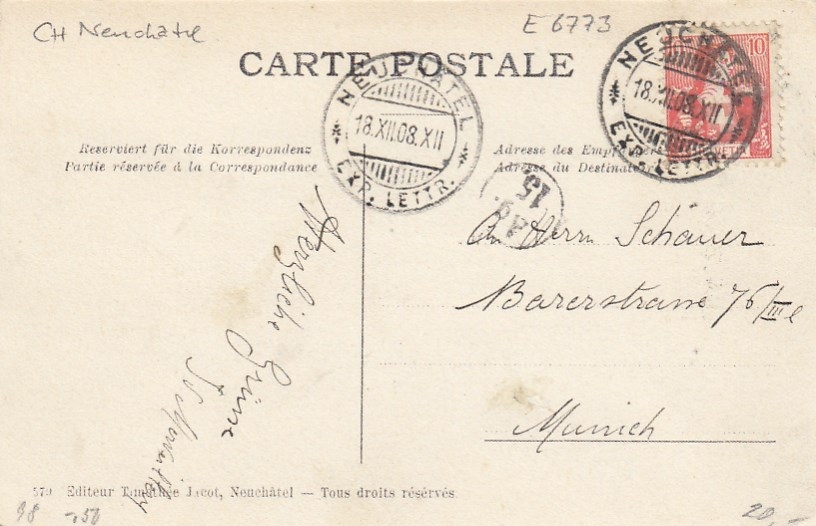 CH Neuchatel
E 6773
CARTE POSTALE
NEUCHATEL
18.XII.08.XII
EXP. LETTR.
NEUCHATEL
18.XII.08.XII
EXP. LETTR.
10
HELVETIA
Reserviert für die Korrespondenz
Partie réservée à la Correspondance
Adresse des Empfängers
Adresse du Destinataire
15
An Herrn Schauer
Barerstrasse 76/III l
Munich
Herzliche Grüsse
579 Editeur Timothée Jacot, Neuchâtel — Tous droits réservés.
98 -.50
20,-